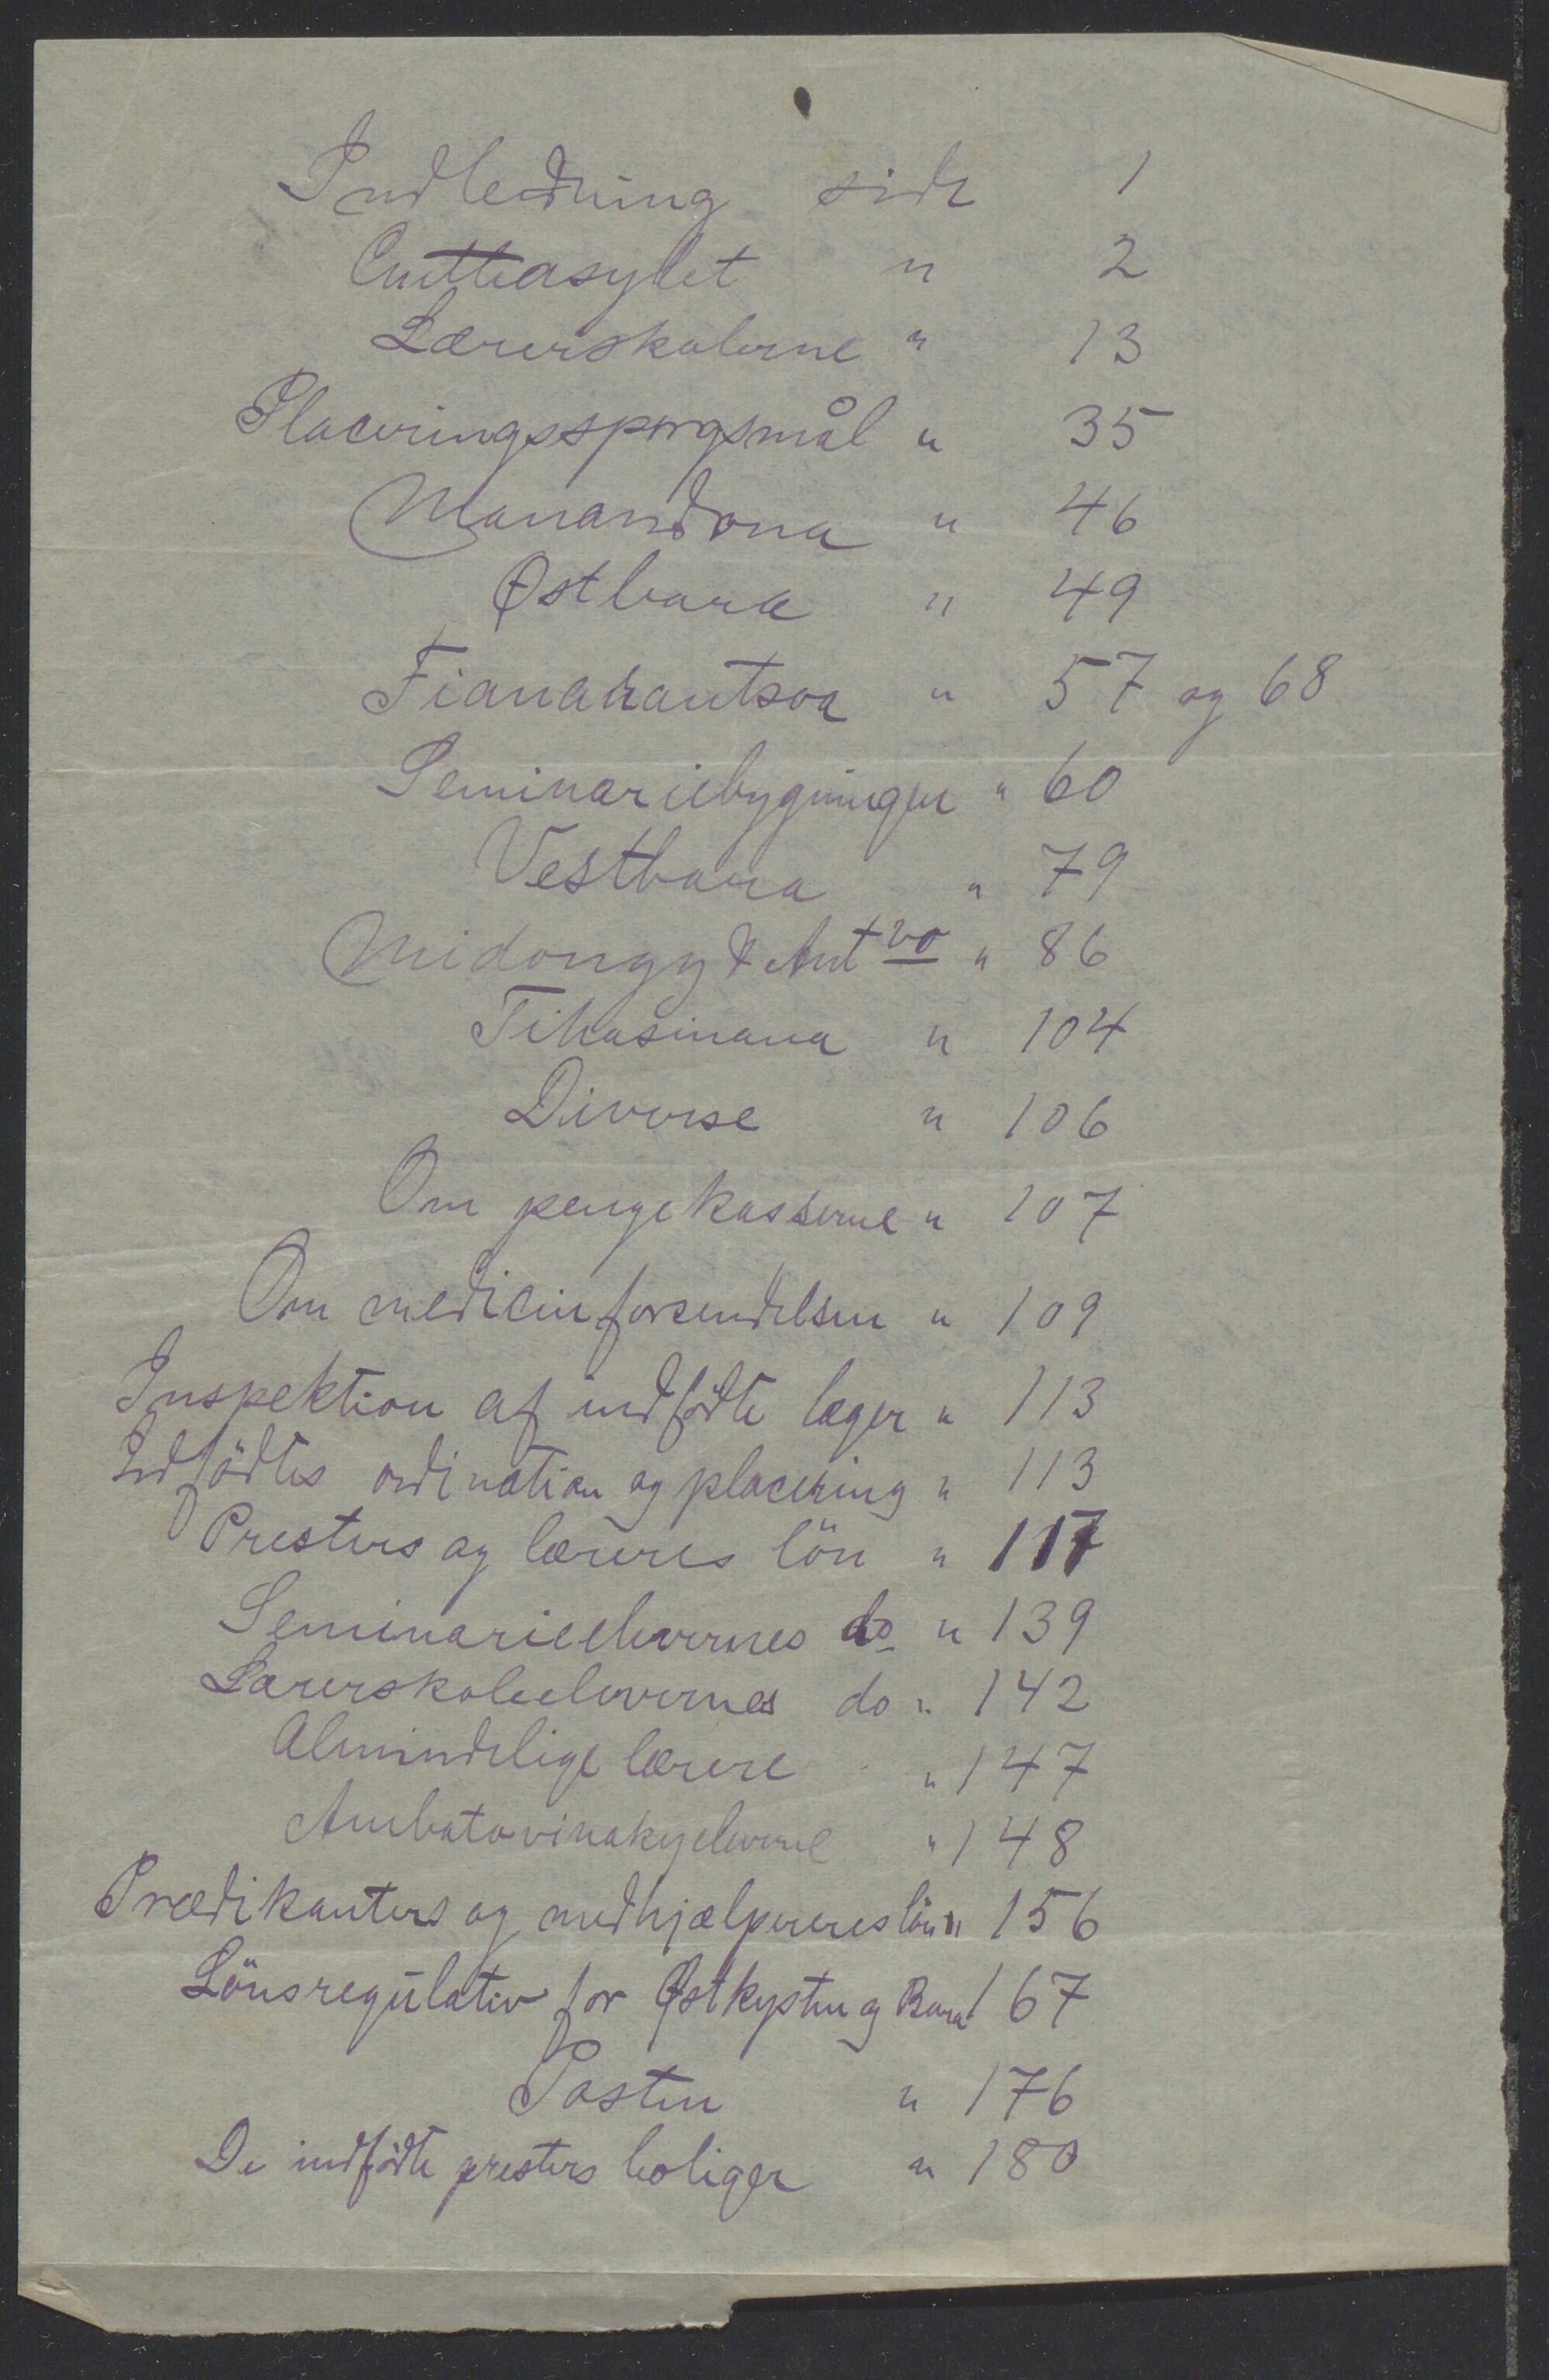 Indledning side 1
" 2
Lærerskolerne " 13
Placeringsspørgsmål " 35
Manandona " 46
Østbara " 49
Fianarantsoa " 57 og 68
Seminariebygningen " 60
Vestbara " 79
Midongy & Ant vo " 86
Tihasinana " 104
Diverse " 106
Om pengekasserne " 107
Om medicinforsendelsen " 109
Inspektion af indfödte læger " 113
Indfödtes ordination og placering " 113
Presters og læreres lön " 117
Seminarieelevernes do " 139
Lærerskoleelevernes do " 142
Almindelige lærere " 147
Ambatovinakyeleverne " 148
Prædikanters og medhjælpereres lön " 156
Lönsregulativ for Østkysten og Bara 167
Posten " 176
De indfödte presters boliger " 180